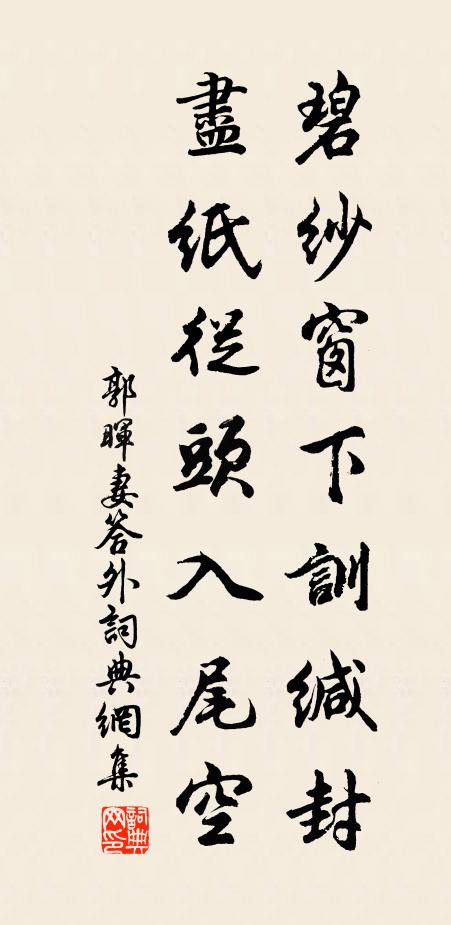 碧紗窗下訓緘封
盡紙從頭入尾空
郭暉妻答外詞典網集
詞典
网印